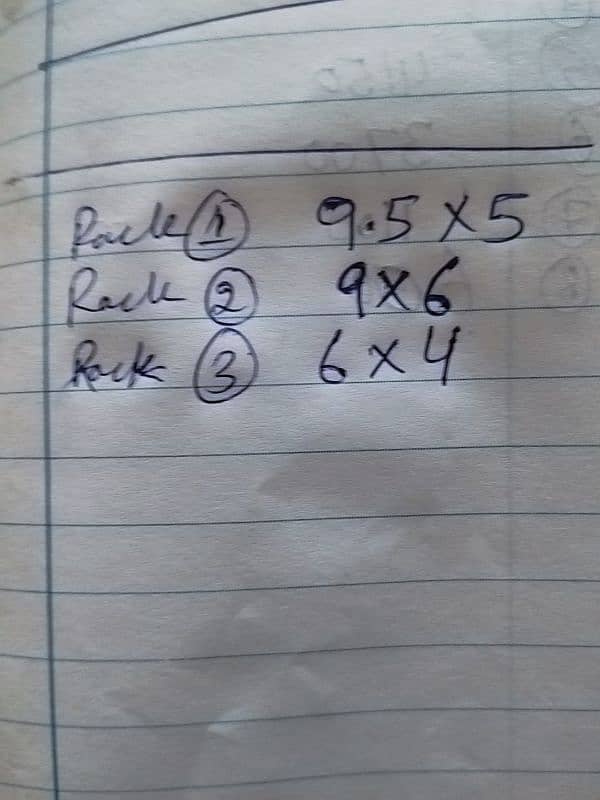 Rack ① 9.5 x 5
Rack ② 9 x 6
Rack ③ 6 x 4